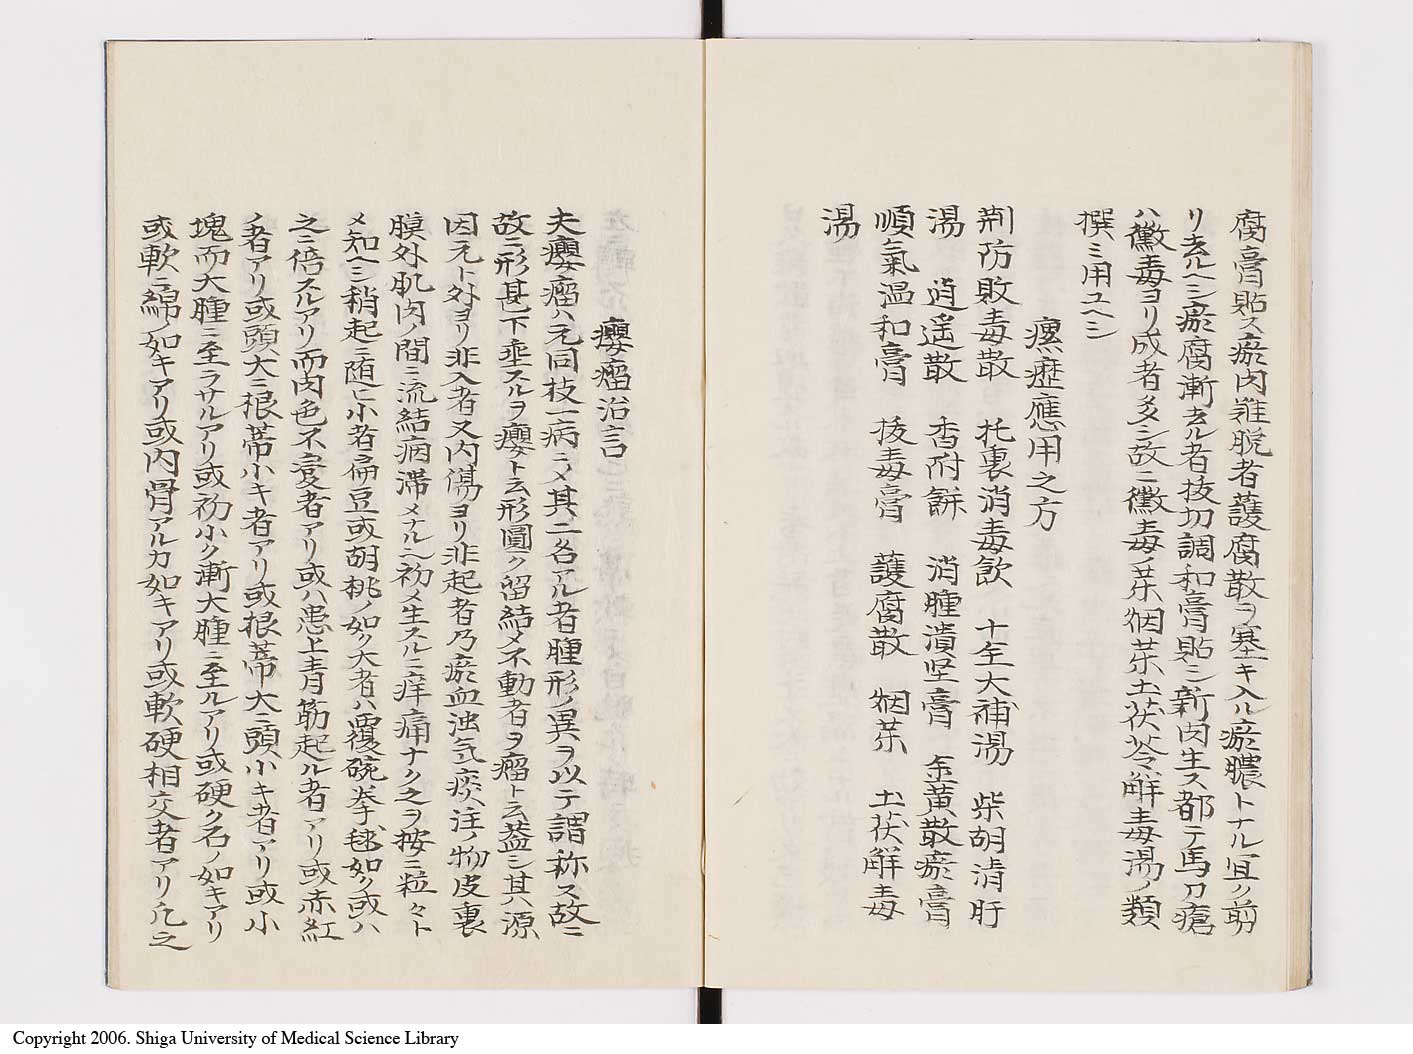 腐膏貼ス瘀肉難脱者護腐散ヲ塞キ入ル瘀膿トナル宜ク剪
リ去ルヘシ瘀腐漸去ル者抜切調和膏貼シ新肉生ス都テ馬刀瘡
ハ黴毒ヨリ成者多シ故ニ黴毒ノ茶烟茶土茯苓解毒湯ノ類
撰ミ用ユヘシ
瘰癧應用之方
荆防敗毒散 托裏消毒飲 十全大補湯 柴胡清肝
湯 逍遥散 香附餅 消腫潰坚膏 金黄散瘀膏
順氣温和膏 抜毒膏 護腐散 烟茶 土茯解毒
湯
癭瘤治言
夫癭瘤ハ元同枝一病ニメ其二名アル者腫形ノ異ヲ以テ謂称ス故ニ
故ニ形甚下垂スルヲ癭ト云形圓ク留結メ不動者ヲ瘤ト云葢シ其源
因元ト外ヨリ非入者又内傷ヨリ非起者乃瘀血浊気痰注ノ物皮裏
膜外肌肉ノ間ニ流結病滞メナル初メ生スルニ痒痛ナク之ヲ按ニ粒々ト
メ知ヘシ稍起ニ随ヒ小者扁豆或胡桃ノ如ク大者ハ覆碗拳毬如ク或ハ
之ニ倍スルアリ而肉色不変者アリ或ハ患上青筋起ル者アリ或赤紅
ノ者アリ或頭大ニ根蒂小キ者アリ或根蒂大ニ頭小キ者アリ或小
塊而大腫ニ至ラサルアリ或初小ク漸大腫ニ至ルアリ或硬ク石ノ如キアリ
或軟ニ綿ノ如キアリ或内骨アルカ如キアリ或軟硬相交者アリ凡之
Copyright 2006. Shiga University of Medical Science Library